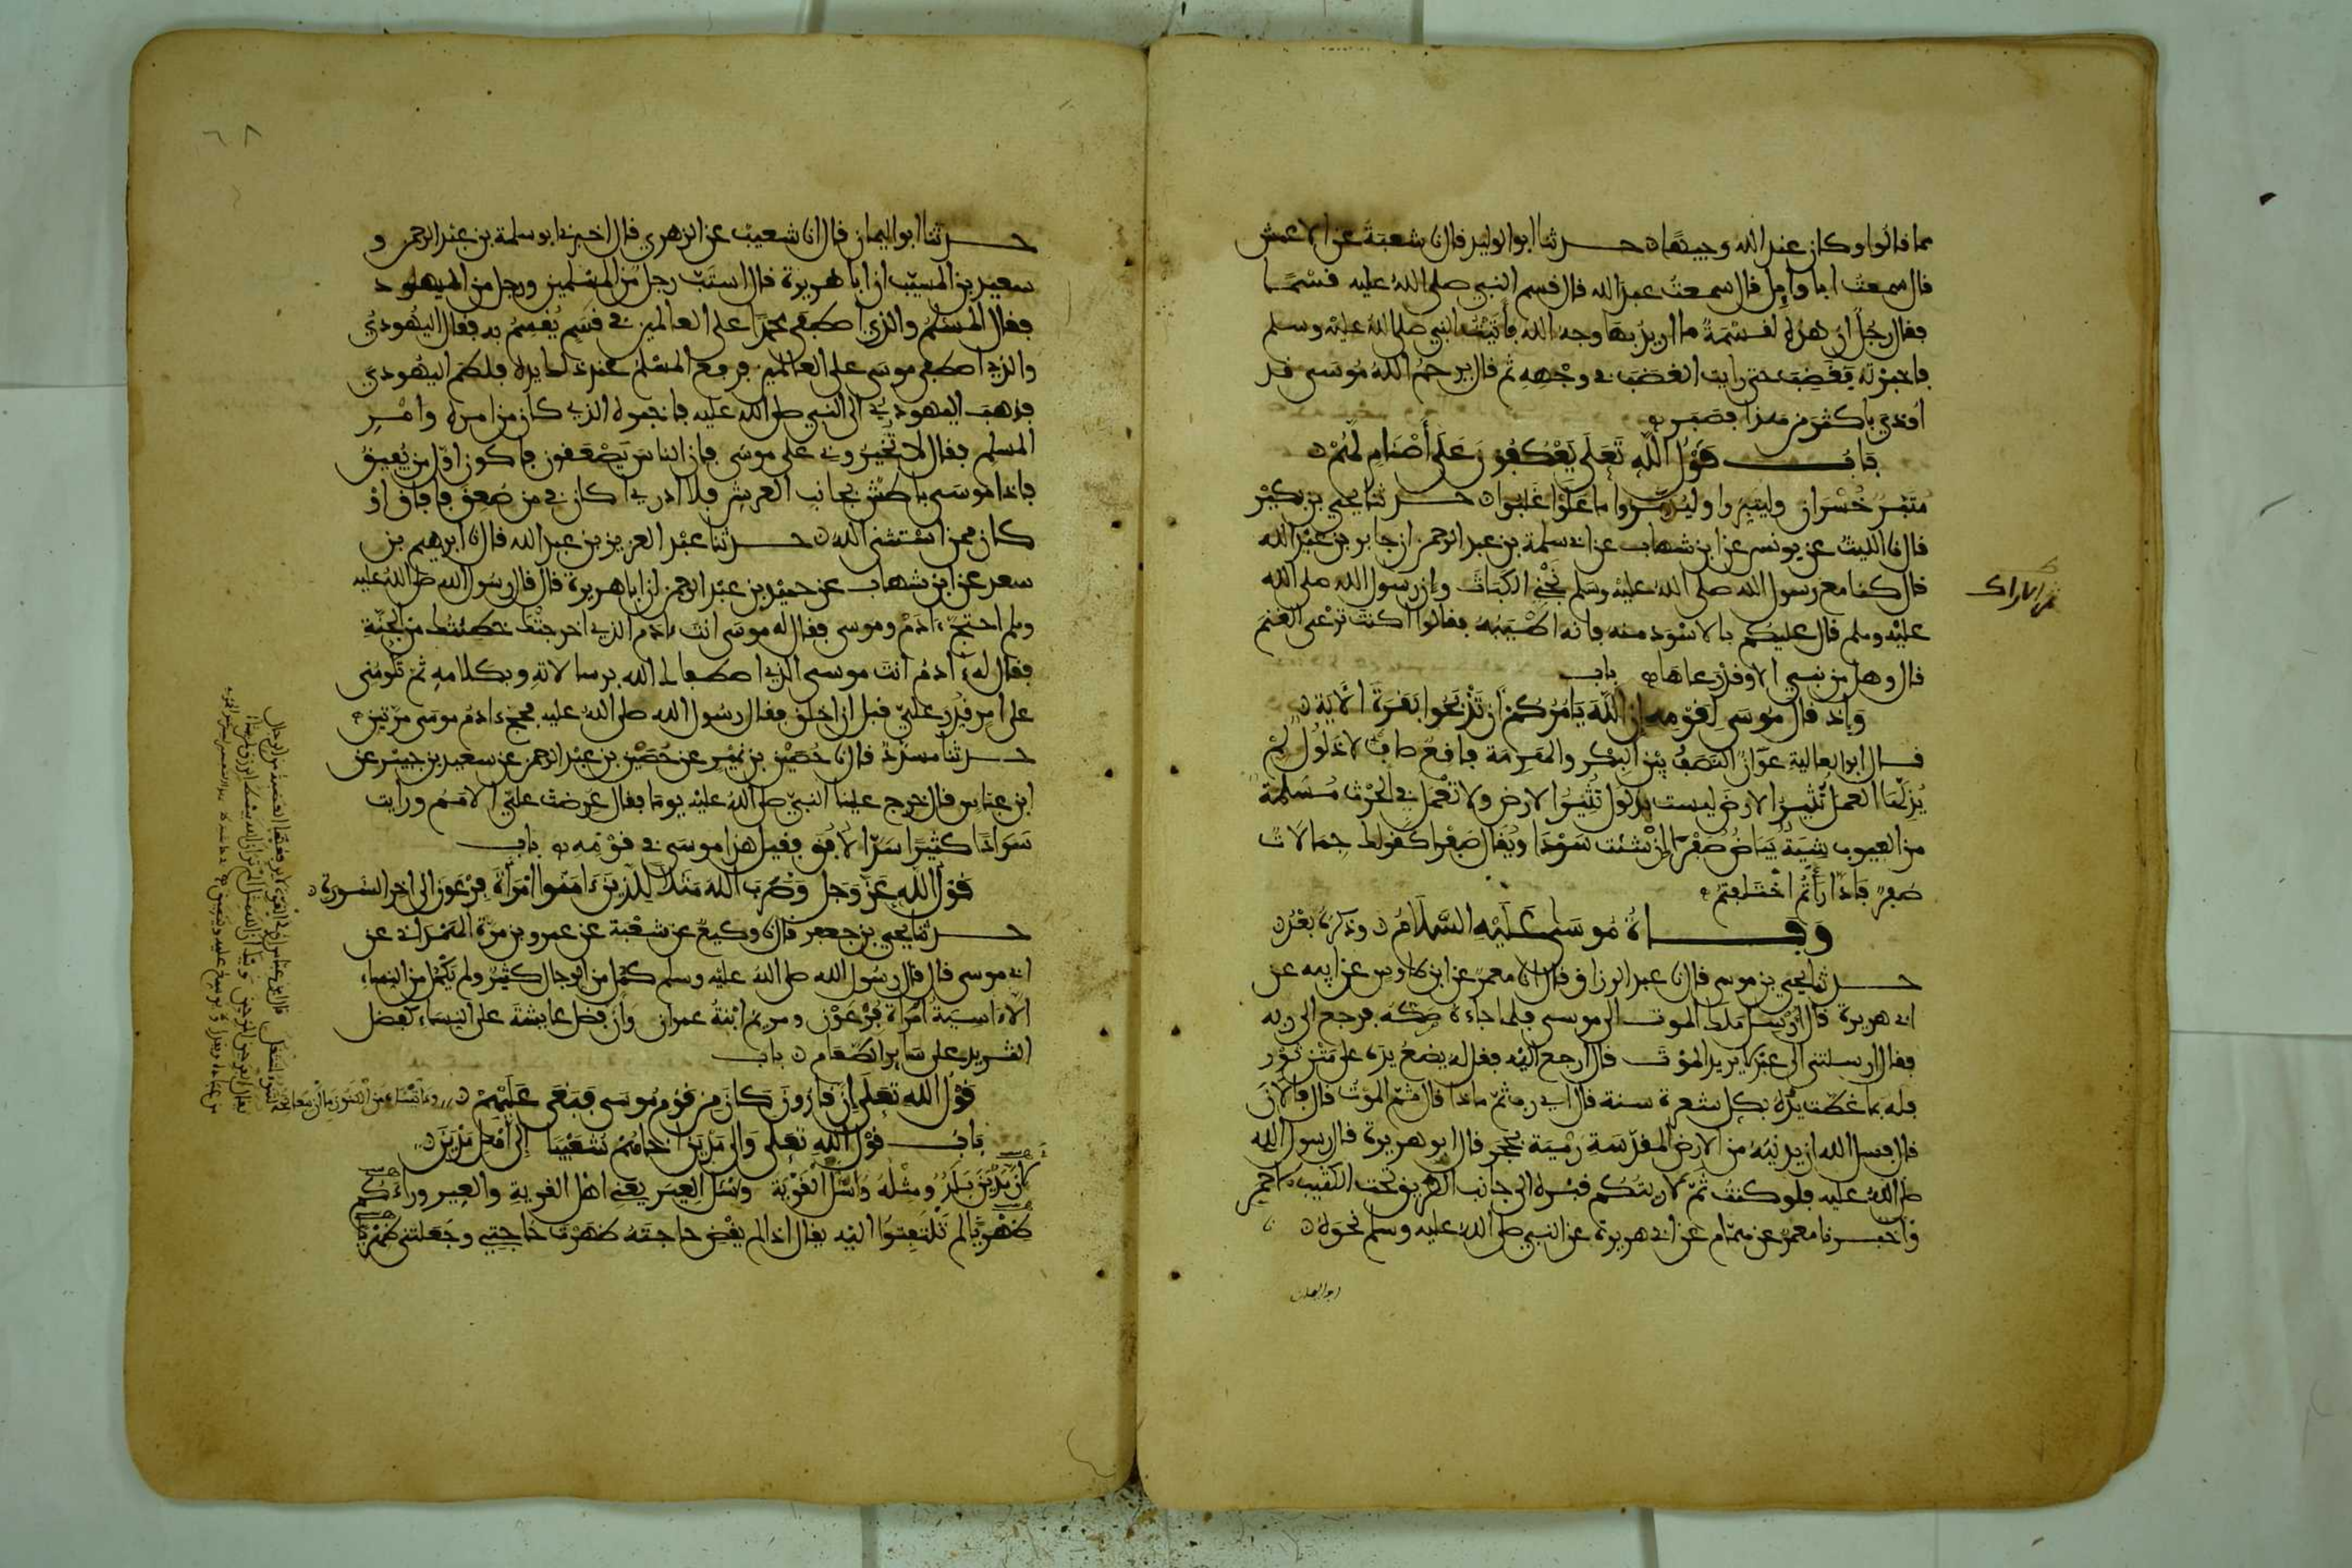 مما قالوا وكان عند الله وجيها حدثنا ابو الوليد قال نا شعبة عن الاعمش
قال سمعت ابا وايل قال سمعت عبد الله قال قسم النبي صلى الله عليه قسما
فقال رجل ان هذه لقسمة ما اريد بها وجه الله فأتيت النبي صلى الله عليه وسلم
فاخبرته فغضب حتى رايت الغضب في وجهه ثم قال يرحم الله موسى قد
اوذي باكثر من هذا فصبر
باب قول الله تعلى يعكفون على أصنام لهم
متبر خسران وليتبروا وليدمروا ما علوا غلبوا حدثنا يحيى بن بكير
قال نا الليث عن يونس عن ابن شهاب عن ابي سلمة بن عبد الرحمن ان جابر بن عبد الله
قال كنا مع رسول الله صلى الله عليه وسلم نجني الكباث وان رسول الله صلى الله
عليه وسلم قال عليكم بالاسود منه فانه اطيبه فقالوا اكنت ترعى الغنم
قال وهل من نبي الا وقد رعاها باب
واذ قال موسى لقومه ان الله يامركم ان تذبحوا بقرة الاية
قال ابو العالية عوان النصف بين البكر والهرمة فاقع صاف لا ذلول لم
يذلها العمل تثير الارض ليست بذلول تثير الارض ولا تعمل في الحرث مسلمة
من العيوب شية بياض صفرا ان شئت سودا ويقال صفرا كقولك جمالات
صفر فادارأتم اختلفتم
وفاة موسى عليه السلام وذكره بعد
حدثنا يحيى بن موسى قال نا عبد الرزاق قال انا معمر عن ابن طاوس عن ابيه عن
ابي هريرة قال ارسل ملك الموت الى موسى فلما جاءه صكه فرجع الى ربه
فقال ارسلتني الى عبد لا يريد الموت قال ارجع اليه فقل له يضع يده على متن ثور
فله بما غطت يده بكل شعرة سنة قال اي رب ثم ماذا قال ثم الموت قال فالآن
قال فسال الله ان يدنيه من الارض المقدسة رمية بحجر قال ابو هريرة قال رسول الله
صلى الله عليه فلو كنت ثم لاريتكم قبره الى جانب الطريق تحت الكثيب الاحمر
قال واخبرنا معمر عن همام عن ابي هريرة عن النبي صلى الله عليه وسلم نحوه
ثمر الاراك
٦٨
حدثنا ابو اليمان قال انا شعيب عن الزهري قال اخبرني ابو سلمة بن عبد الرحمن و
سعيد بن المسيب ان ابا هريرة قال استب رجل من المسلمين ورجل من اليهود
فقال المسلم والذي اصطفى محمدا على العالمين في قسم يقسم به فقال اليهودي
والذي اصطفى موسى على العالمين فرفع المسلم عند ذلك يده فلطم اليهودي
فذهب اليهودي الى النبي صلى الله عليه فاخبره الذي كان من امره وامر
المسلم فقال لا تخيروني على موسى فان الناس يصعقون فاكون اول من يفيق
فاذا موسى باطش بجانب العرش فلا ادري اكان في من صعق فافاق او
كان ممن استثنى الله حدثنا عبد العزيز بن عبد الله قال نا ابرهيم بن
سعد عن ابن شهاب عن حميد بن عبد الرحمن ان ابا هريرة قال قال رسول الله صلى الله عليه
وسلم احتج ءادم وموسى فقال له موسى انت ءادم الذي اخرجتك خطيئتك من الجنة
فقال له ءادم انت موسى الذي اصطفاك الله برسالاته وبكلامه ثم تلومني
على امر قدر علي قبل ان اخلق فقال رسول الله صلى الله عليه فحج ءادم موسى مرتين
حدثنا مسدد قال نا حصين بن نمير عن حصين بن عبد الرحمن عن سعيد بن جبير عن
ابن عباس قال خرج علينا النبي صلى الله عليه يوما فقال عرضت علي الامم ورايت
سوادا كثيرا سد الافق فقيل هذا موسى في قومه باب
قول الله عز وجل وضرب الله مثلا للذين ءامنوا امرأة فرعون الى اخر السورة
حدثنا يحيى بن جعفر قال نا وكيع عن شعبة عن عمرو بن مرة الهمداني عن
ابي موسى قال قال رسول الله صلى الله عليه وسلم كمل من الرجال كثير ولم يكمل من النساء
الا ءاسية امرأة فرعون ومريم ابنة عمران وان فضل عايشة على النساء كفضل
الثريد على ساير الطعام باب
قول الله تعلى ان قارون كان من قوم موسى فبغى عليهم
باب قول الله تعلى والى مدين اخاهم شعيبا الى أهل مدين
لان مدين بلد ومثله واسئل القرية واسئل العير يعني اهل القرية والعير وراءكم
ظهريا لم تلتفتوا اليه يقال اذا لم يقض حاجته ظهرت حاجتي وجعلتني ظهريا